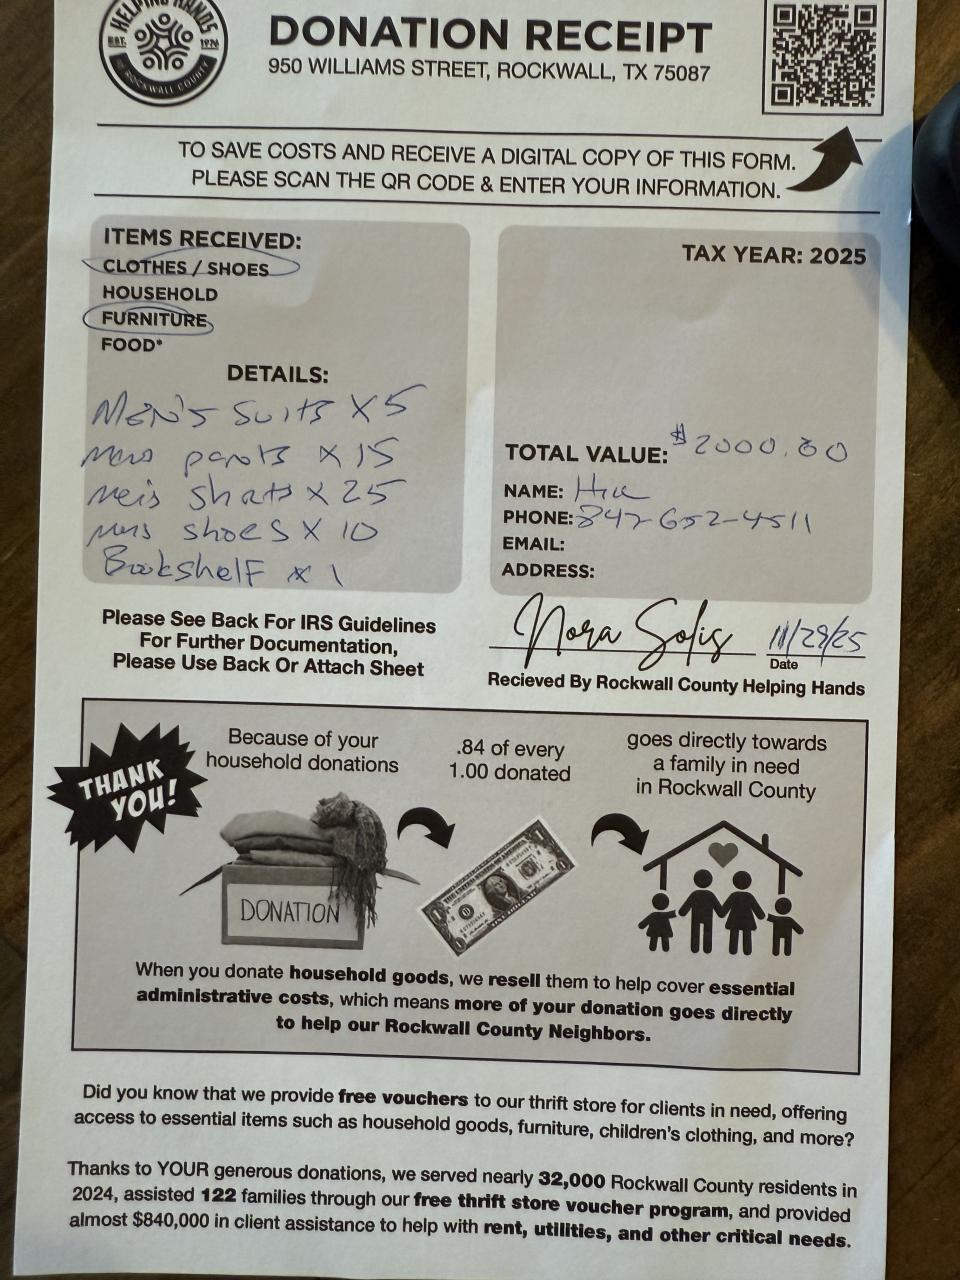 HELPING HANDS
EST. 1974
OF ROCKWALL COUNTY
DONATION RECEIPT
950 WILLIAMS STREET, ROCKWALL, TX 75087
TO SAVE COSTS AND RECEIVE A DIGITAL COPY OF THIS FORM.
PLEASE SCAN THE QR CODE & ENTER YOUR INFORMATION.
ITEMS RECEIVED:
CLOTHES / SHOES
HOUSEHOLD
FURNITURE
FOOD*
DETAILS:
MEN'S SUITS X 5
mens pants X 15
mens shirts X 25
mens shoes X 10
BookshelF x 1
TAX YEAR: 2025
TOTAL VALUE: $2000.00
NAME:
PHONE: 847-652-4511
EMAIL:
ADDRESS:
Please See Back For IRS Guidelines
For Further Documentation,
Please Use Back Or Attach Sheet
Nora Solis 11/29/25
Date
Recieved By Rockwall County Helping Hands
THANK YOU!
Because of your
household donations
.84 of every
1.00 donated
goes directly towards
a family in need
in Rockwall County
DONATION
When you donate household goods, we resell them to help cover essential
administrative costs, which means more of your donation goes directly
to help our Rockwall County Neighbors.
Did you know that we provide free vouchers to our thrift store for clients in need, offering
access to essential items such as household goods, furniture, children's clothing, and more?
Thanks to YOUR generous donations, we served nearly 32,000 Rockwall County residents in
2024, assisted 122 families through our free thrift store voucher program, and provided
almost $840,000 in client assistance to help with rent, utilities, and other critical needs.